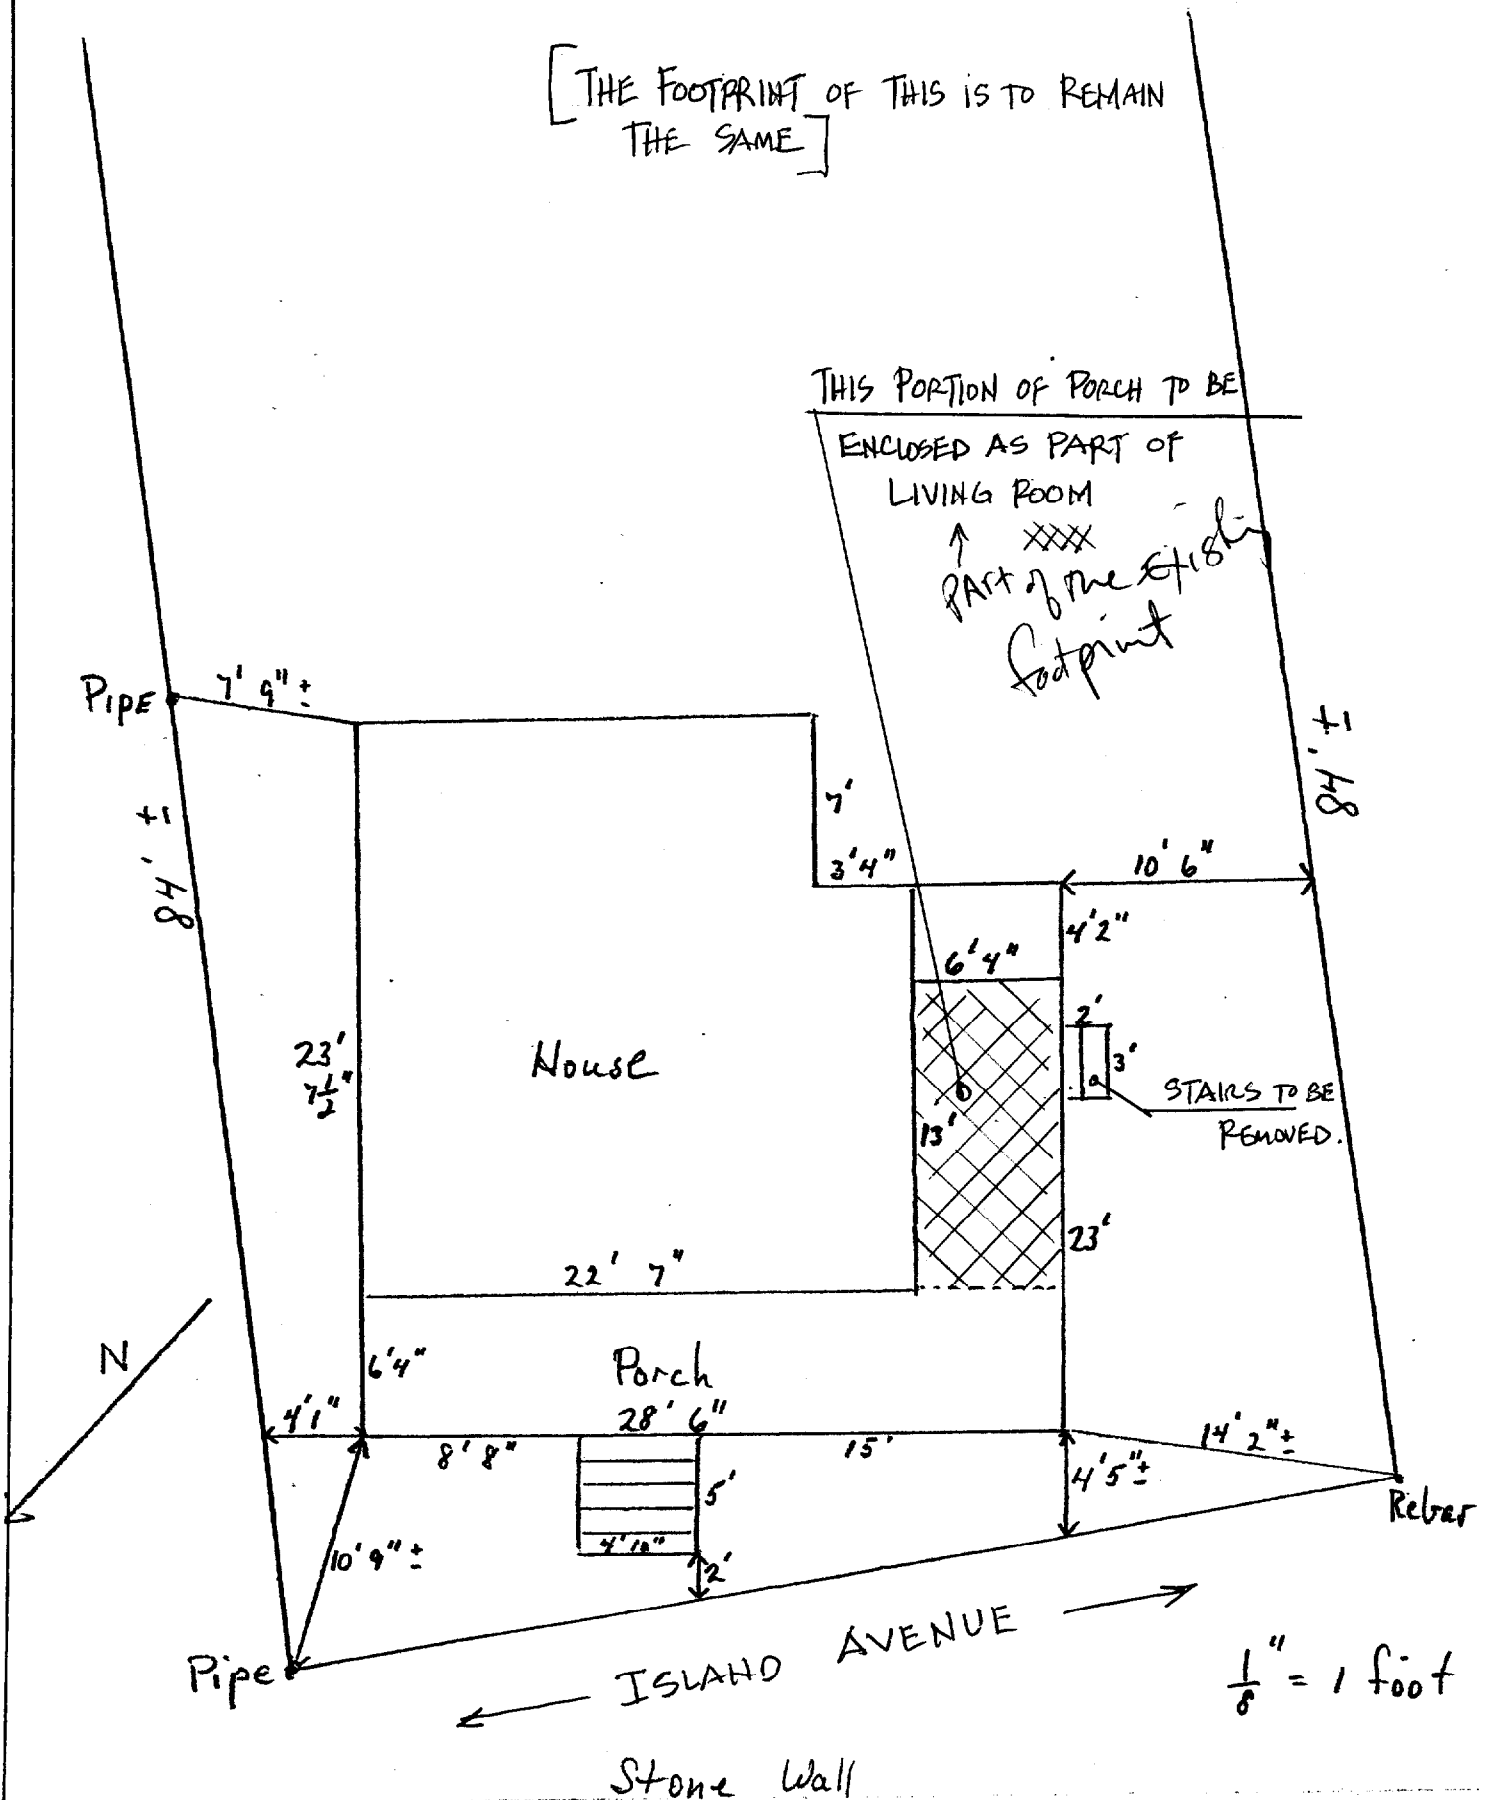 [THE FOOTPRINT OF THIS IS TO REMAIN
THE SAME]
THIS PORTION OF PORCH TO BE
ENCLOSED AS PART OF
LIVING ROOM
PART of the Existing
footprint
PIPE
7' 9" ±
84' ±
84' ±
7'
3'4"
10' 6"
4'2"
6'4"
2'
3'
STAIRS TO BE
REMOVED.
House
23'
7 1/2"
13'
23'
22' 7"
N
6'4"
Porch
4'1"
28' 6"
8' 8"
15'
14' 2" ±
4'5" ±
5'
4'10"
2'
10' 9" ±
Rebar
Pipe
ISLAND AVENUE
1/8" = 1 foot
Stone Wall